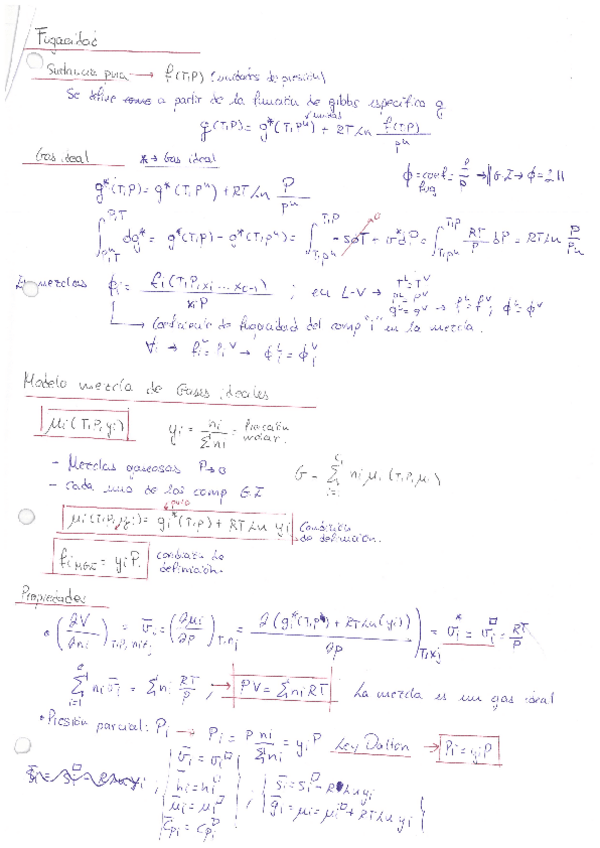 Fugacidad
Sustancia pura → f(T,P) (unidades de presión)
Se define como a partir de la función de gibbs específica g
g(T,P) = g*(T,Pᵘ) + RT Ln f(T,P)/Pᵘ
Gas ideal * → Gas ideal
ϕ = coef. fug = f/P → G.I →
g*(T,P) = g*(T,Pᵘ) + RT Ln P/Pᵘ
∫ dg* = g*(T,P) - g*(T,Pᵘ) = ∫ -SdT + v*dP = ∫ RT/P dP = RT Ln P/Pᵘ
En mezclas ϕi = fi(T,P,xi...xc-1)/xiP ; en L-V → Tᴸ = Tⱽ
Pᴸ = Pⱽ
gᴸ = gⱽ → fᴸ = fⱽ ; ϕᴸ = ϕⱽ
→ Coeficiente de fugacidad del comp "i" en la mezcla.
∀i → fiᴸ = fiⱽ → ϕiᴸ = ϕiⱽ
Modelo mezcla de Gases ideales
μi(T,P,yi) yi = ni/Σni = Fracción molar.
- Mezclas gaseosas P→0
- Cada uno de los comp G.I
G = Σ ni μi (T,P,μi)
puro
μi(T,P,yi) = gi*(T,P) + RT Ln yi Condición de definición.
fi MGI = yi P. Condición de definición.
Propiedades
• (∂V/∂ni)T,P,nj = v̄i = (∂μi/∂P)T,ni = ∂(gi*(T,P) + RT Ln(yi))/∂P )T,xj = vi* = vi□ = RT/P
Σ ni v̄i = Σ ni RT/P ; → PV = Σ ni RT La mezcla es un gas ideal
• Presión parcial: Pi → Pi = P ni/Σni = yi P Ley Dalton → Pi = yi P
v̄i = vi□
h̄i = hi□
μ̄i = μi□
C̄pi = Cpi□
; s̄i = si□ - R Ln yi
ḡi = μi = μi□ + RT Ln yi